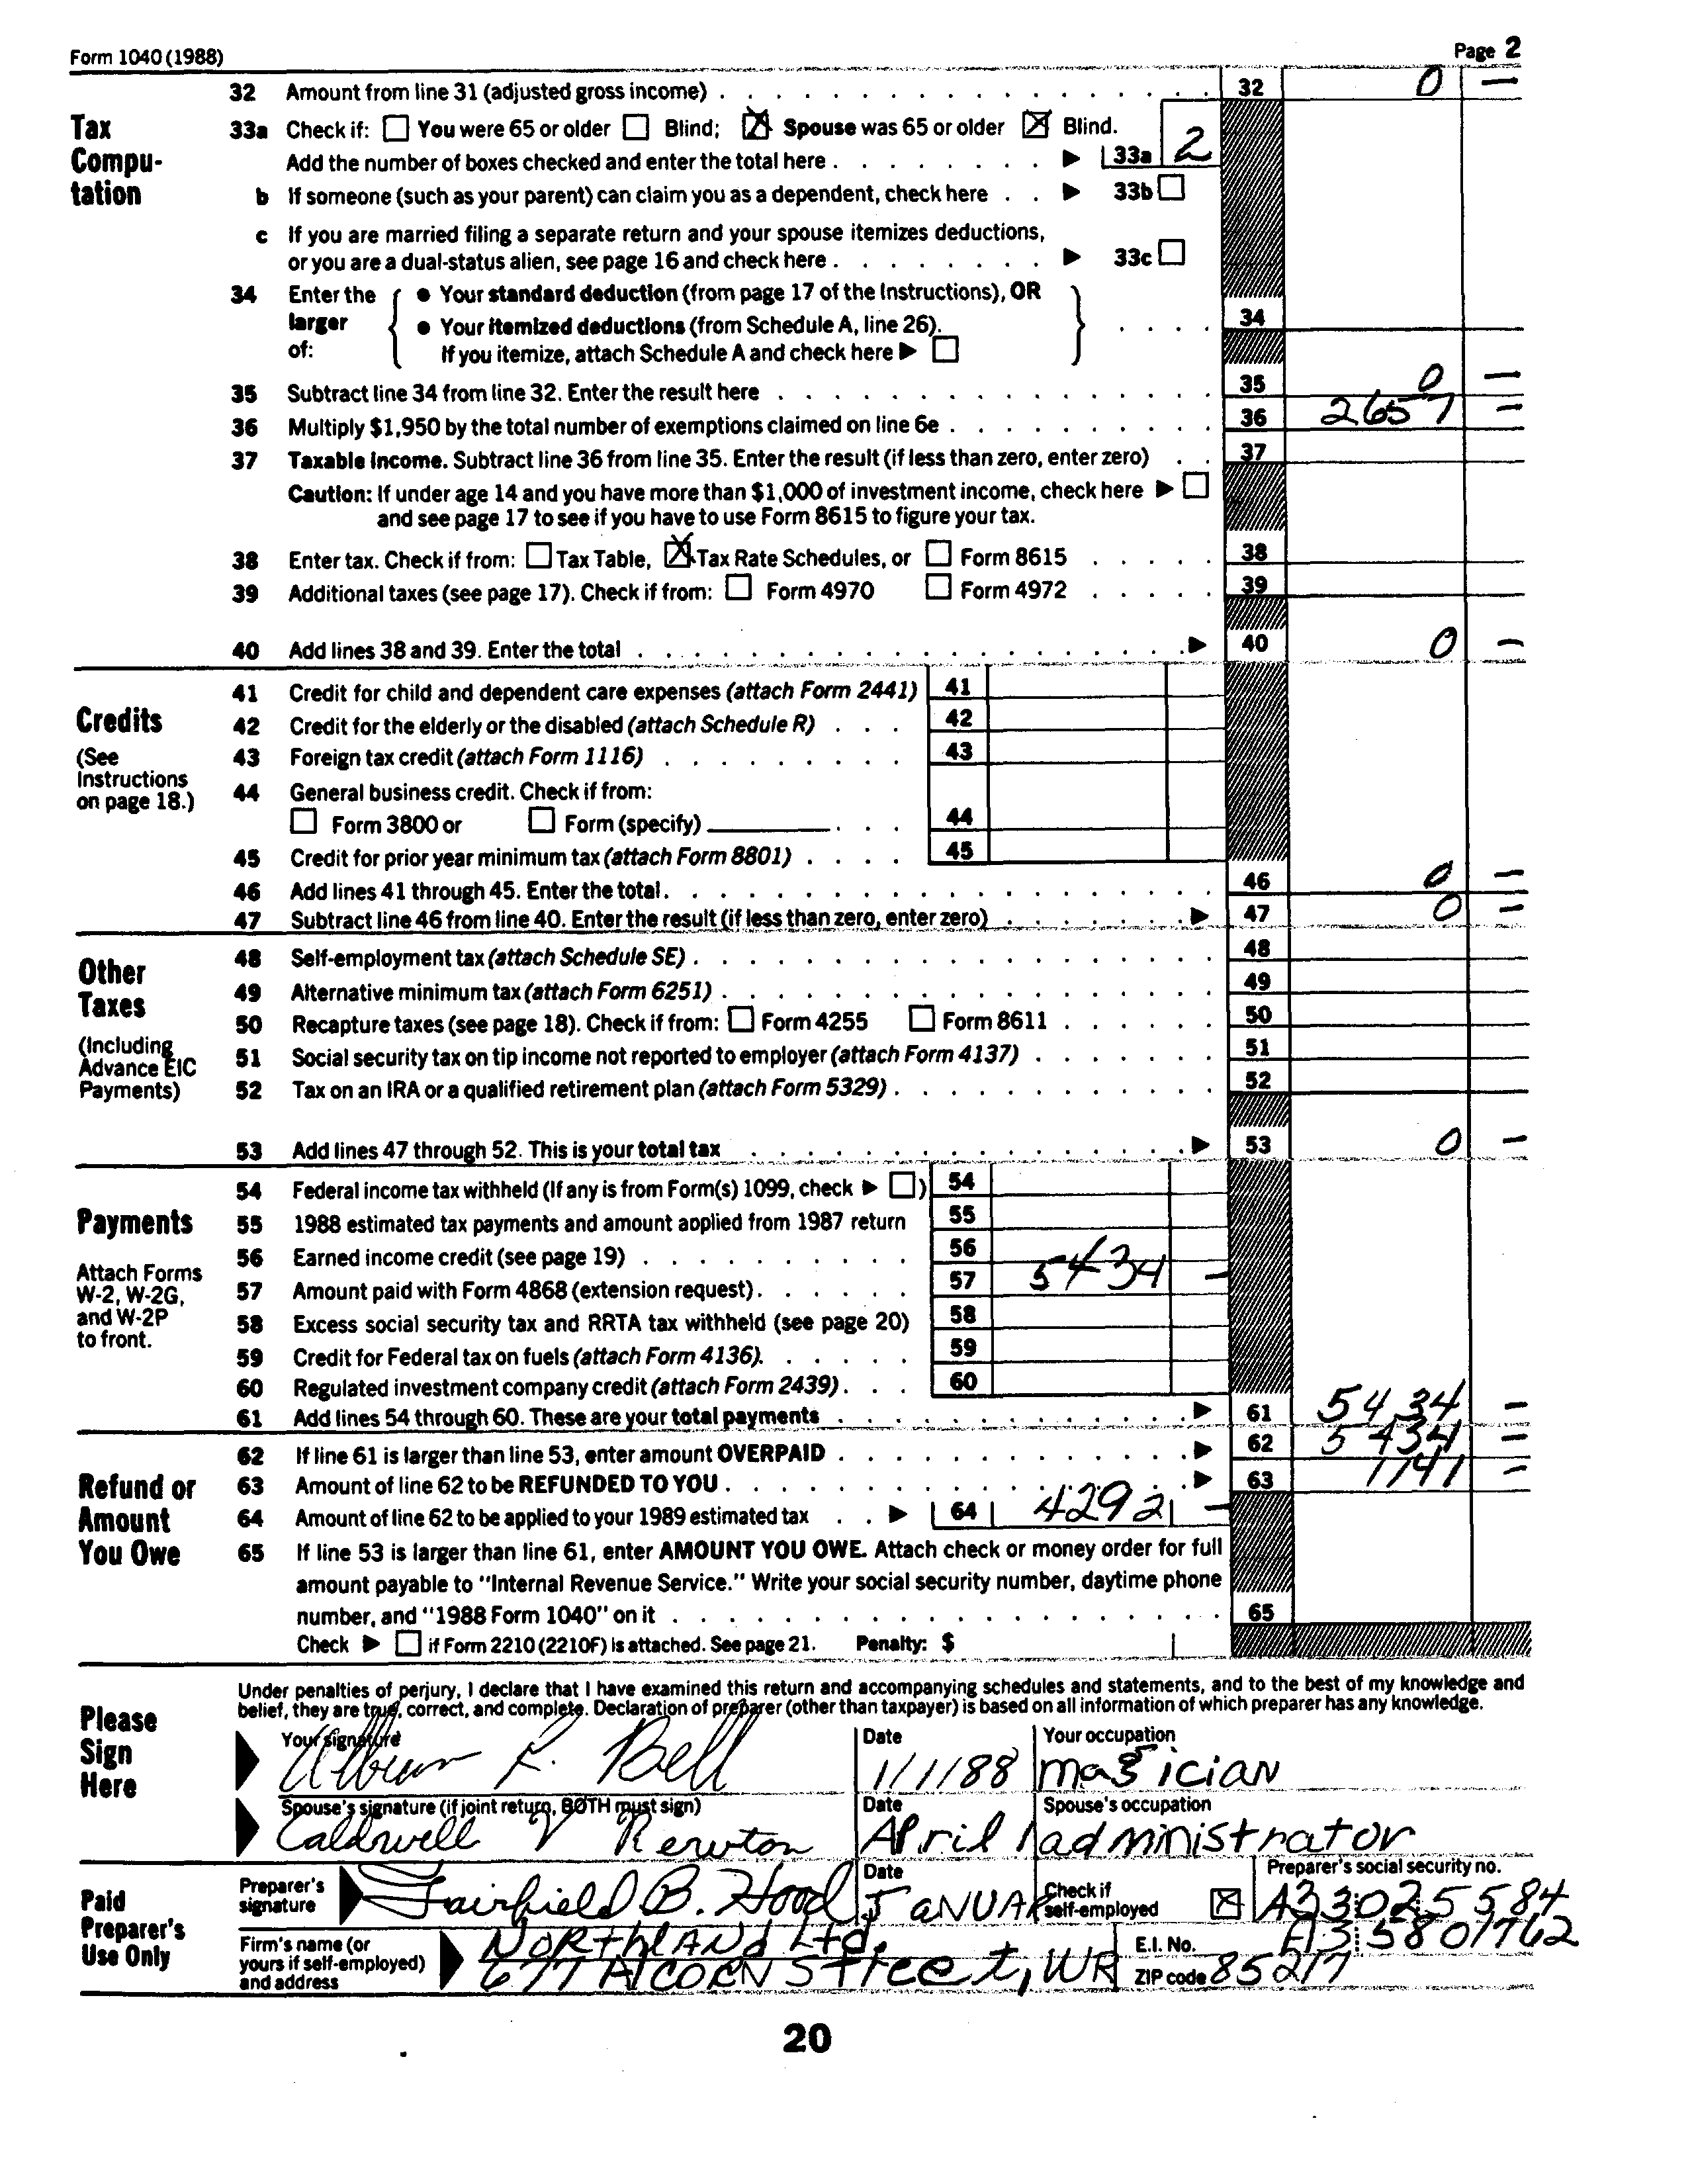 Form 1040 (1988) Page 2
32 Amount from line 31 (adjusted gross income) 32 0 —
Tax Compu-tation
33a Check if: You were 65 or older Blind; Spouse was 65 or older Blind.
Add the number of boxes checked and enter the total here 33a 2
b If someone (such as your parent) can claim you as a dependent, check here 33b
c If you are married filing a separate return and your spouse itemizes deductions,
or you are a dual-status alien, see page 16 and check here 33c
34 Enter the larger of:
• Your standard deduction (from page 17 of the Instructions), OR
• Your itemized deductions (from Schedule A, line 26). 34
If you itemize, attach Schedule A and check here
35 Subtract line 34 from line 32. Enter the result here 35 0 —
36 Multiply $1,950 by the total number of exemptions claimed on line 6e 36 2657 —
37 Taxable income. Subtract line 36 from line 35. Enter the result (if less than zero, enter zero) 37
Caution: If under age 14 and you have more than $1,000 of investment income, check here
and see page 17 to see if you have to use Form 8615 to figure your tax.
38 Enter tax. Check if from: Tax Table, Tax Rate Schedules, or Form 8615 38
39 Additional taxes (see page 17). Check if from: Form 4970 Form 4972 39
40 Add lines 38 and 39. Enter the total 40 0 —
Credits
(See Instructions on page 18.)
41 Credit for child and dependent care expenses (attach Form 2441) 41
42 Credit for the elderly or the disabled (attach Schedule R) 42
43 Foreign tax credit (attach Form 1116) 43
44 General business credit. Check if from:
Form 3800 or Form (specify) 44
45 Credit for prior year minimum tax (attach Form 8801) 45
46 Add lines 41 through 45. Enter the total. 46 0 —
47 Subtract line 46 from line 40. Enter the result (if less than zero, enter zero) 47 0 —
Other Taxes
(Including Advance EIC Payments)
48 Self-employment tax (attach Schedule SE) 48
49 Alternative minimum tax (attach Form 6251) 49
50 Recapture taxes (see page 18). Check if from: Form 4255 Form 8611 50
51 Social security tax on tip income not reported to employer (attach Form 4137) 51
52 Tax on an IRA or a qualified retirement plan (attach Form 5329) 52
53 Add lines 47 through 52. This is your total tax 53 0 —
Payments
Attach Forms W-2, W-2G, and W-2P to front.
54 Federal income tax withheld (If any is from Form(s) 1099, check ) 54
55 1988 estimated tax payments and amount applied from 1987 return 55
56 Earned income credit (see page 19) 56
57 Amount paid with Form 4868 (extension request) 57 5434 —
58 Excess social security tax and RRTA tax withheld (see page 20) 58
59 Credit for Federal tax on fuels (attach Form 4136). 59
60 Regulated investment company credit (attach Form 2439) 60
61 Add lines 54 through 60. These are your total payments 61 5434 —
Refund or Amount You Owe
62 If line 61 is larger than line 53, enter amount OVERPAID 62 5434 —
63 Amount of line 62 to be REFUNDED TO YOU 63 1141 —
64 Amount of line 62 to be applied to your 1989 estimated tax 64 4292 —
65 If line 53 is larger than line 61, enter AMOUNT YOU OWE. Attach check or money order for full
amount payable to "Internal Revenue Service." Write your social security number, daytime phone
number, and "1988 Form 1040" on it 65
Check if Form 2210 (2210F) is attached. See page 21. Penalty: $
Please Sign Here
Under penalties of perjury, I declare that I have examined this return and accompanying schedules and statements, and to the best of my knowledge and
belief, they are true, correct, and complete. Declaration of preparer (other than taxpayer) is based on all information of which preparer has any knowledge.
Your signature Date Your occupation
Bell 1/1/88 magician
Spouse's signature (if joint return, BOTH must sign) Date Spouse's occupation
Caldwell V April 1 administrator
Paid Preparer's Use Only
Preparer's signature Fairfield B. Hood Date JaNUAR Check if self-employed Preparer's social security no. A33025584
Firm's name (or yours if self-employed) and address Northland Ltd. E.I. No. A35801762
677 Alcorn Street, WR ZIP code 85217
20